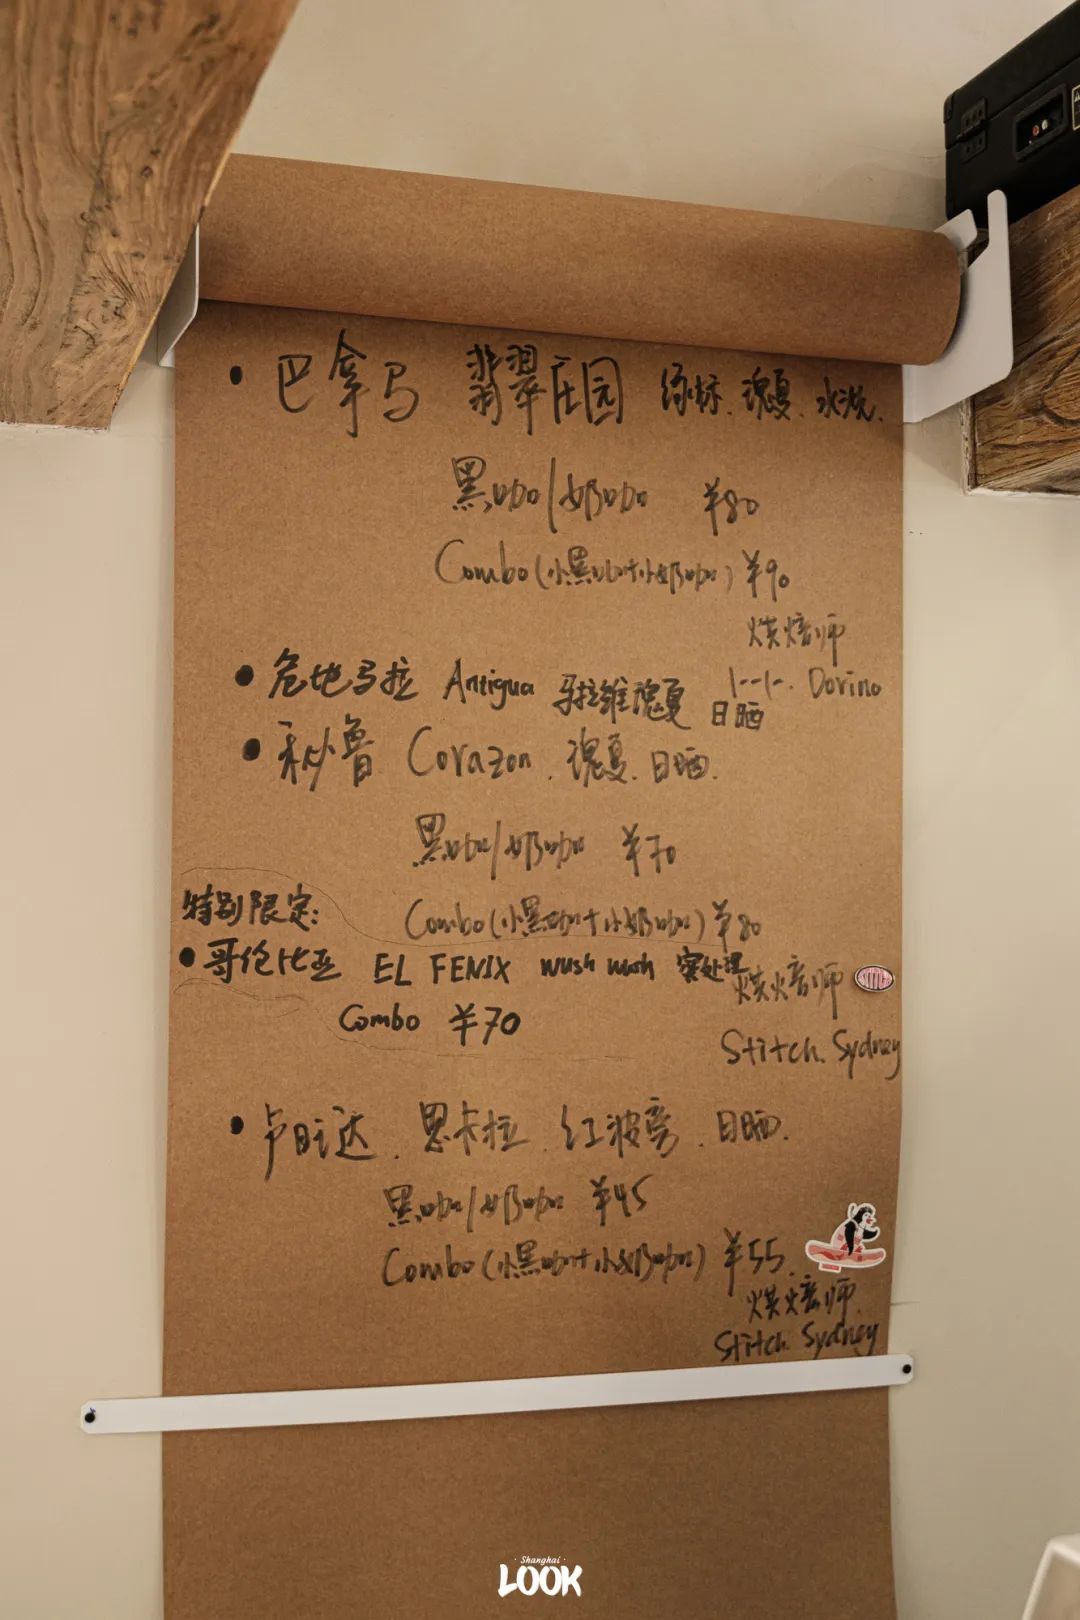 • 巴拿马 翡翠庄园 绿标. 瑰夏. 水洗.
黑咖/奶咖 ¥80
Combo(小黑咖+小奶咖) ¥90
烘焙师
Dorino
• 危地马拉 Antigua 马拉维瑰夏 日晒
• 秘鲁 Corazon. 瑰夏. 日晒.
黑咖/奶咖 ¥70
Combo(小黑咖+小奶咖) ¥80
特别限定:
• 哥伦比亚 EL FENIX wush wush 蜜处理
Combo ¥70
烘焙师
Stitch. Sydney
• 卢旺达. 思卡拉. 红波旁. 日晒.
黑咖/奶咖 ¥45
Combo(小黑咖+小奶咖) ¥55.
烘焙师.
Stitch. Sydney
Shanghai
LOOK